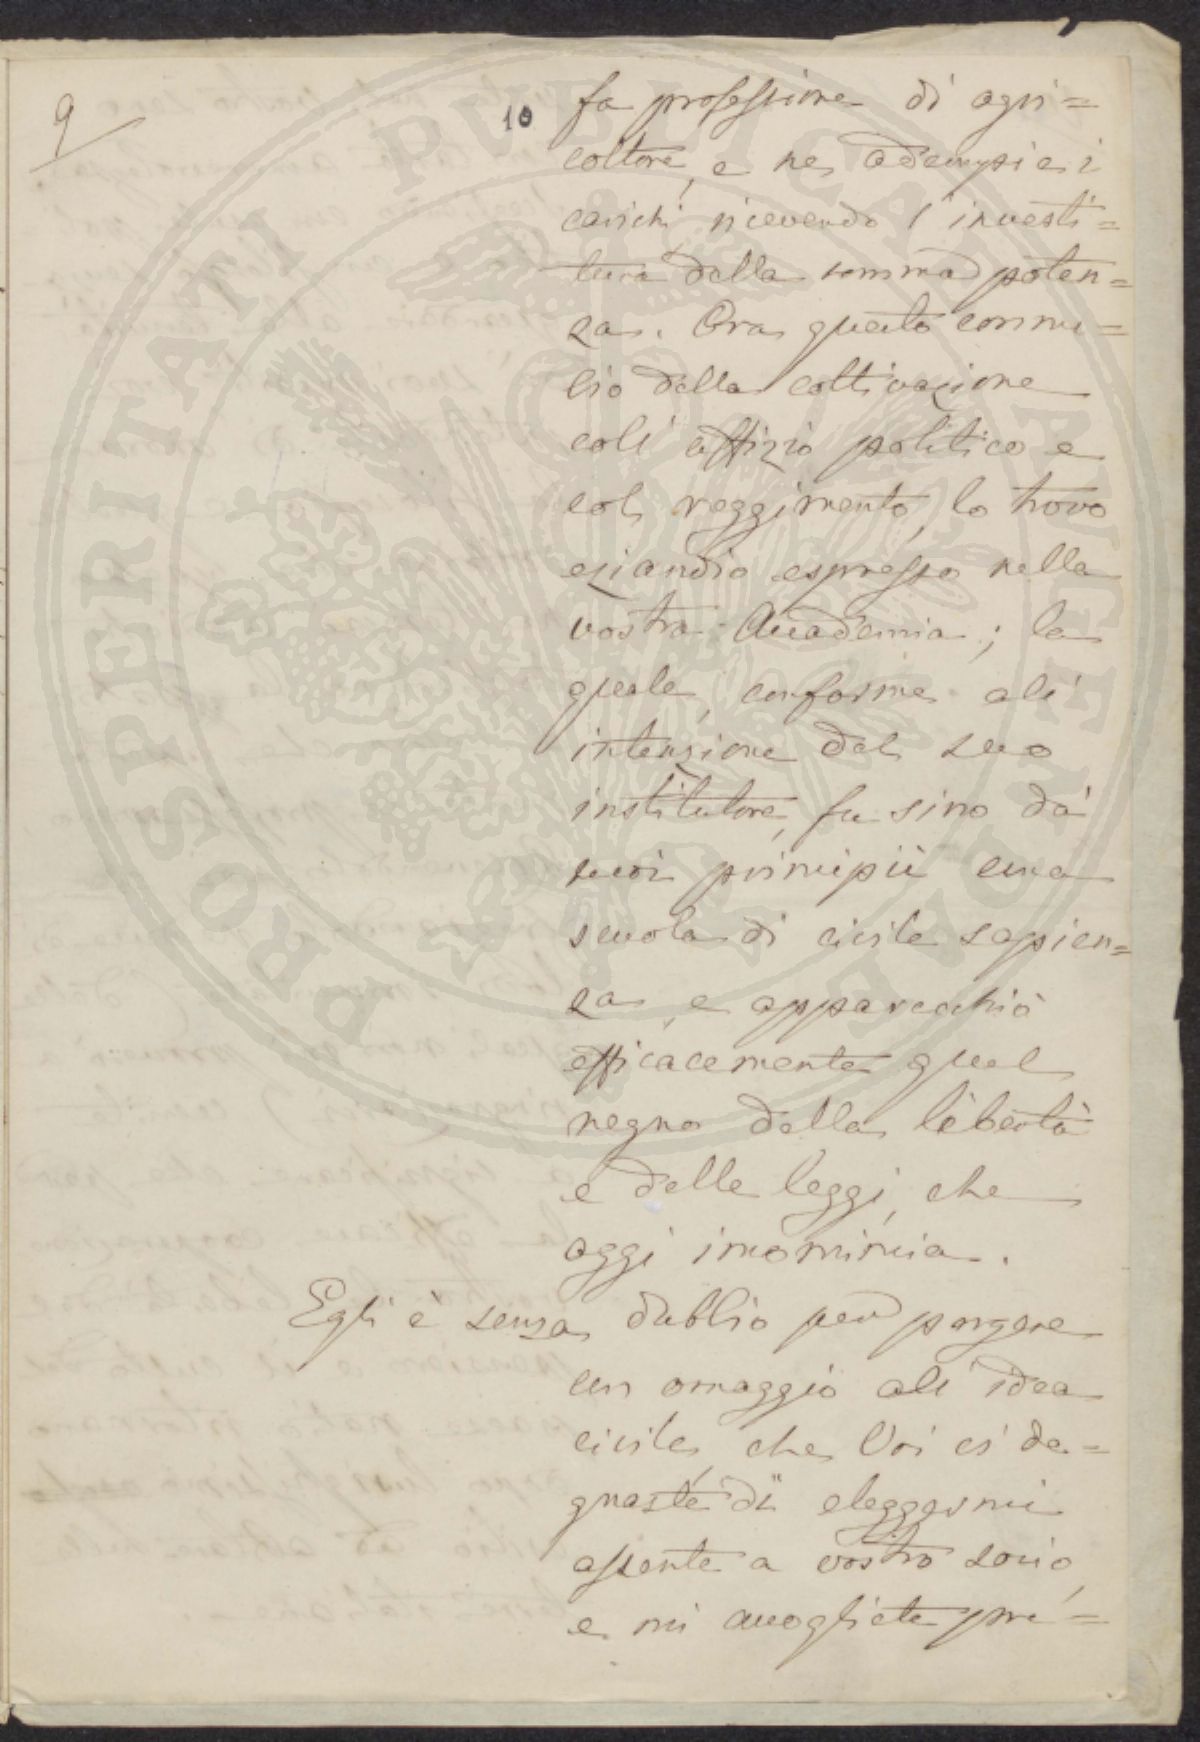 9
10
fa professione di agri=
coltore, e ne adempie i
carichi ricevendo l'investi=
tura della somma poten=
za. Ora questo connu=
bio della coltivazione
coll' uffizio politico e
col reggimento, lo trovo
eziandio espresso nella
vostra Accademia; la
quale, conforme all'
intenzione del suo
institutore, fu sino da'
suoi principii una
scuola di civile sapien=
za, e apparecchiò
efficacemente quel
regno della libertà
e delle leggi, che
oggi incomincia.
Egli è senza dubbio per porgere
un omaggio all' idea
civile, che Voi vi de=
gnaste di eleggermi
assente a vostro socio,
e mi accogliete pre=
PROSPERITATI PUBLICAE AUGENDAE